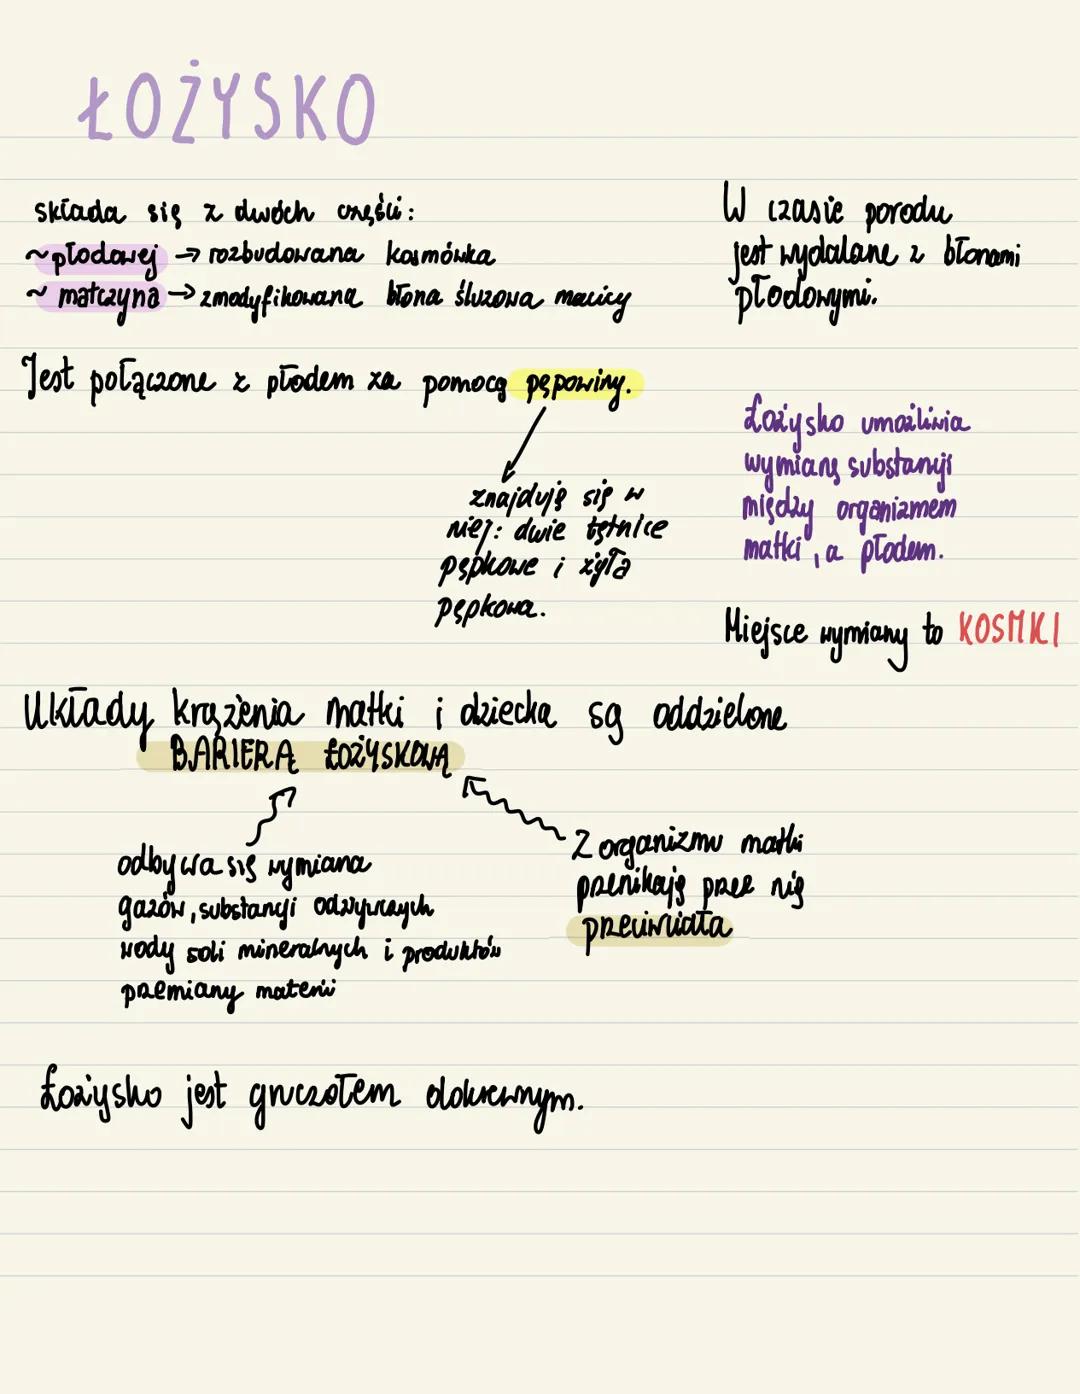 ŁOŻYSKO
składa się z dwóch części:
~płodowej → rozbudowana kosmówka
~ matczyna → zmodyfikowana błona śluzowa macicy
W czasie porodu
jest wydalane z błonami
płodowymi.
Jest połączone z płodem za pomocą pępowiny.
znajduję się w
niej: dwie tętnice
pępkowe i żyła
pępkowa.
Łożysko umożliwia
wymianę substancji
między organizmem
matki, a płodem.
Miejsce wymiany to KOSMKI
Układy krążenia matki i dziecka są oddzielone
BARIERĄ ŁOŻYSKOWĄ
odbywa się wymiana
gazów, substancji odżywczych
wody soli mineralnych i produktów
przemiany materii
Z organizmu matki
przenikają przez nią
przeciwciała
Łożysko jest gruczołem dokrewnym.